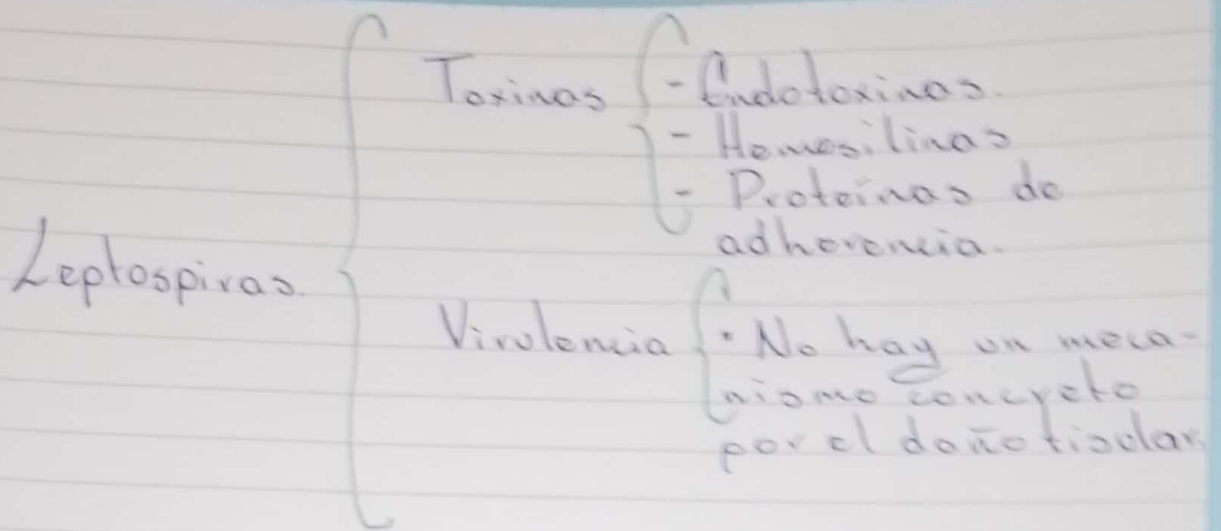 Leptospiras.
Toxinas
- Endotoxinas.
- Hemosilinas
- Proteinas de
adherencia.
Virulencia
• No hay un meca-
nismo concreto
por el daño tisular